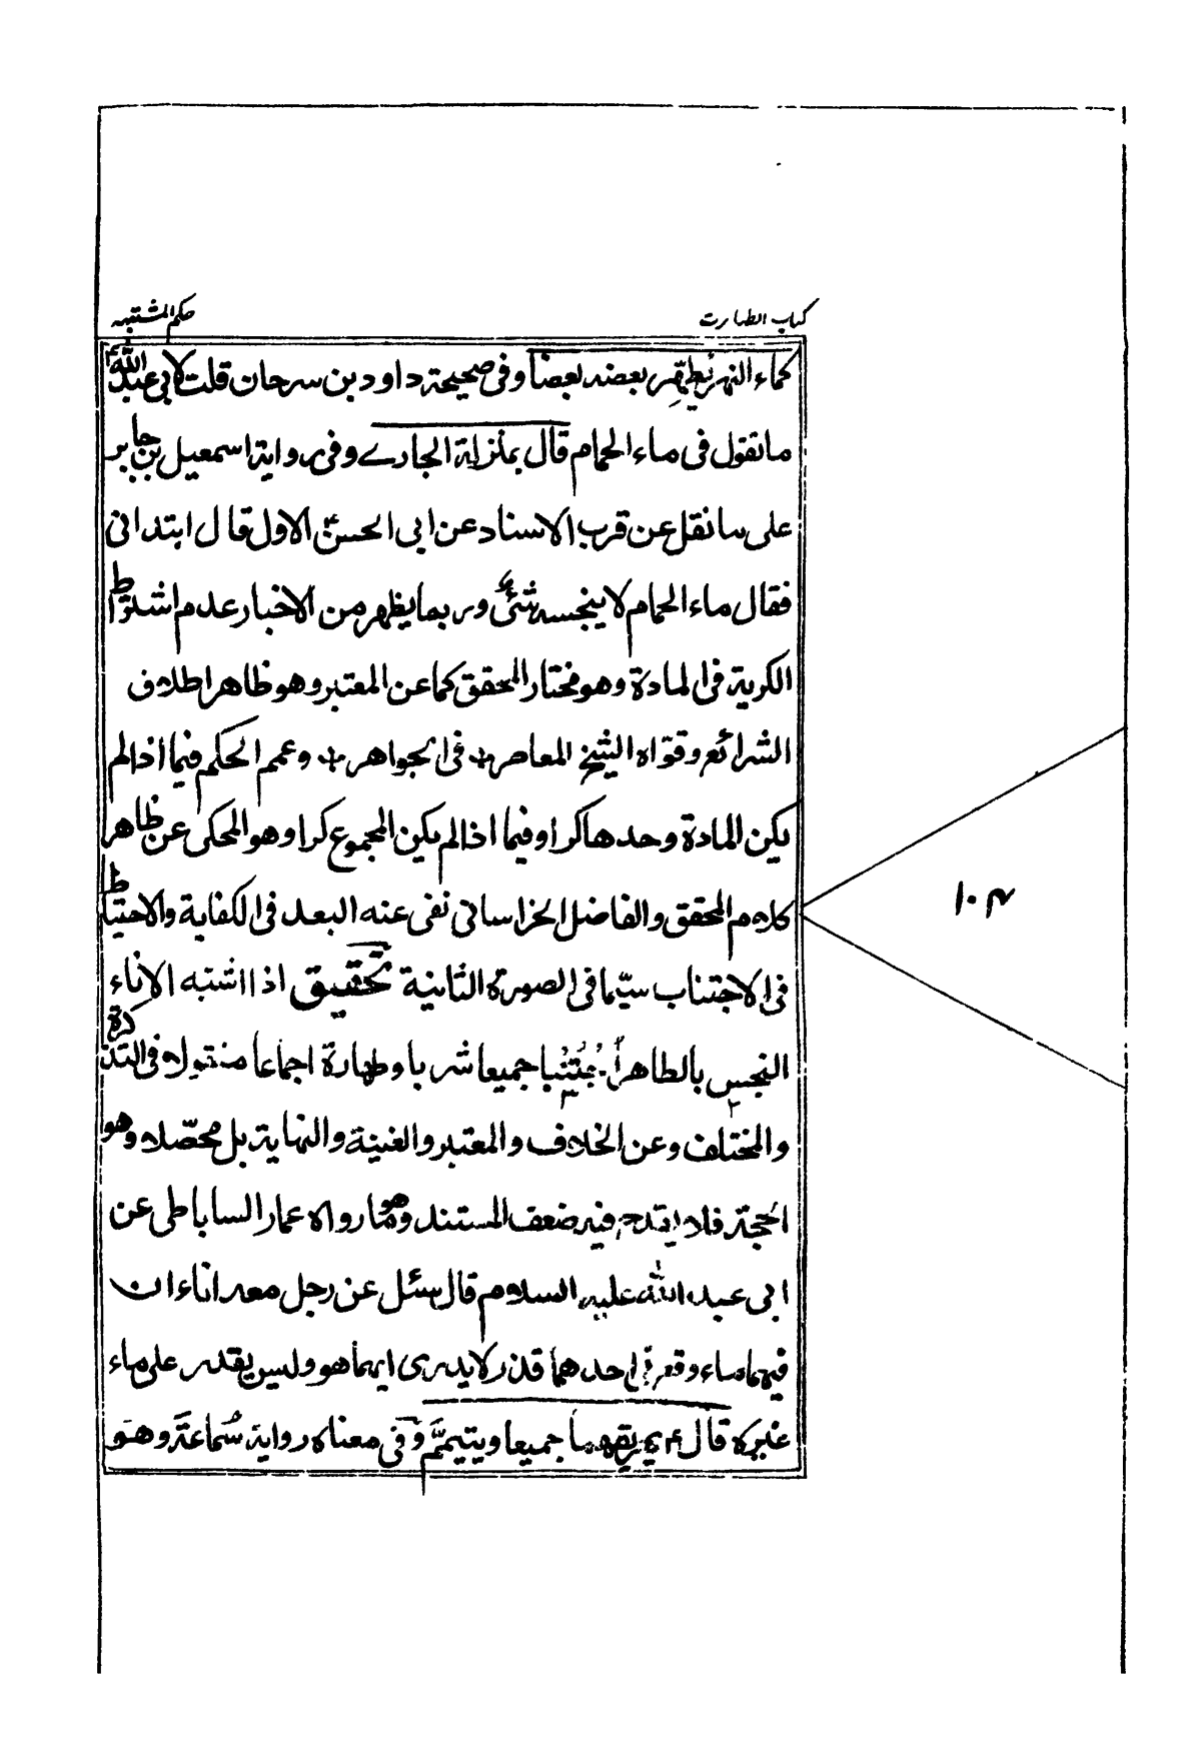 كتاب الطهارت
حكم المشتبه
كماء النهر يطهر بعضه بعضا وفى صحيحة داود بن سرحان قلت لابى عبد الله ع
ما تقول فى ماء الحمام قال بمنزلة الجارے وفى رواية اسمعيل بن جابر
على ما نقل عن قرب الاسناد عن ابى الحسن الاول قال ابتدانى
فقال ماء الحمام لا ينجسه شئ وربما يظهر من الاخبار عدم اشتراط
الكرية فى المادة وهو مختار المحقق كما عن المعتبر وهو ظاهر اطلاق
الشرائع وقوّاه الشيخ المعاصر ره فى الجواهر ره وعمم الحكم فيما اذا لم
يكن المادة وحدها كرا وفيما اذا لم يكن المجموع كرا وهو المحكى عن ظاهر
كلام المحقق والفاضل الخراسانى نفى عنه البعد فى الكفاية والاحتياط
فى الاجتناب سيّما فى الصورة الثانية تحقيق اذا اشتبه الاناء
النجس بالطاهر اجتنبا جميعا شربا وطهارة اجماعا منقولا فى التذكرة
والمختلف وعن الخلاف والمعتبر والغنية والنهاية بل محصّلا وهو
الحجة فلا يقدح فيه ضعف المستند وهو ما رواه عمار الساباطى عن
ابى عبد الله عليه السلام قال سئل عن رجل معه اناء ان
فيهما ماء وقع فى احدهما قذر لا يدرى ايهما هو وليس يقدر على ماء
غيره قال ع يهريقهما جميعا ويتيمّم وفى معناه رواية سماعة وهو
١٠٣